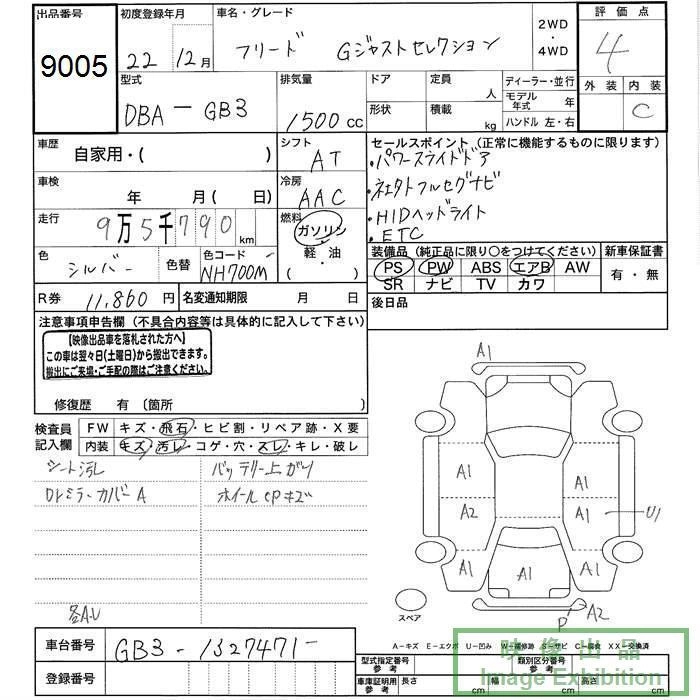 出品番号 初度登録年月 車名・グレード 2WD・4WD 評価点
9005 22 12月 フリード Gジャストセレクション 4
外装 内装
C
型式 排気量 ドア 定員 人 ディーラー・並行
モデル年式 年
DBA-GB3 1500cc 形状 積載 kg ハンドル 左・右
車歴 自家用・( ) シフト AT セールスポイント (正常に機能するものに限ります)
・パワースライドドア
車検 年 月( 日) 冷房 AAC
・社外フルセグナビ
・HIDヘッドライト
・ETC
走行 9万5千790km 燃料 ガソリン・軽・油・( )
色 シルバー 色替 色コード NH700M
装備品 (純正品に限り○をつけてください) 新車保証書
PS PW ABS エアB AW 有・無
SR ナビ TV カワ
R券 11,860円 名変通知期限 月 日 後日品
注意事項申告欄 (不具合内容等は具体的に記入して下さい)
【映像出品車を落札された方へ】
この車は翌々日(土曜日)から搬出できます。
搬出にご来場・ご手配の際はご注意ください。
修復歴 有 (箇所 )
検査員記入欄 FW キズ・飛石・ヒビ割・リペア跡・X要
内装 キズ・汚レ・コゲ・穴・スレ・キレ・破レ
シート汚レ バッテリー上がり
Dドミラーカバー A ホイールcpキズ
各A.U
A1
A1 A1
A2 A1 U1
A1 A1 A1
スペア P A2
A-キズ E-エクボ U-凹み W-補修跡 S-サビ C-腐食 XX-交換済
車台番号 GB3-1327471-
登録番号
型式指定番号 参考 類別区分番号 参考
車庫証明用 参考 長さ cm 幅 cm 高さ cm
映像出品
Image Exhibition